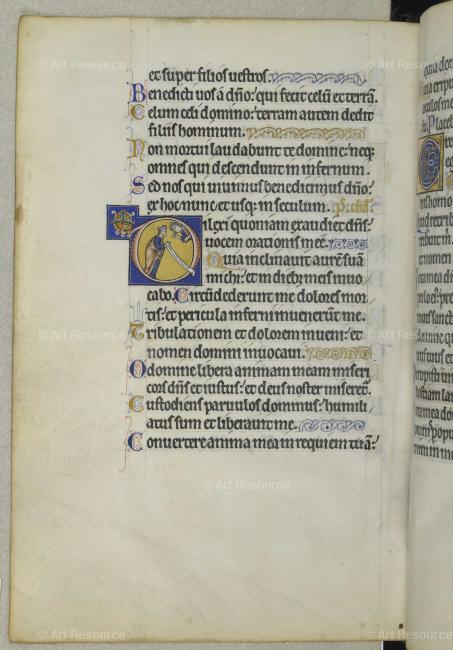 et super filios uestros.
Benedicti uos a dño: qui fecit celũ et terrã.
Celum celi domino: terram autem dedit
filiis hominum.
Non mortui laudabunt te domine: neqꝫ
omnes qui descendunt in infernum.
Sed nos qui uiuimus benedicimus dño:
ex hoc nunc et usqꝫ in seculum.
Dilexi quoniam exaudiet dñs:
uocem orationis mee.
Quia inclinauit aurẽ suã
michi: et in diebꝫ meis inuo
cabo. Circũdederunt me dolores mor
tis: et pericula inferni inuenerũt me.
Tribulationem et dolorem inueni: et
nomen domini inuocaui.
O domine libera animam meam miseri
cors dñs et iustus: et deus noster miseret̃.
Custodiens paruulos dominus: humili
atus sum et liberauit me.
Conuertere anima mea in requiem tuã:
© Art Resource
© Art Resource
© Art Resource
© Art Resource
© Art Resource
© Art Resource